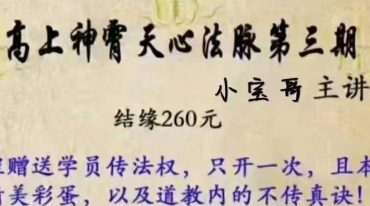 高上神霄天心法脉第三期
小宝哥 主讲
结缘260元
赠送学员传法权，只开一次，且本
美彩蛋，以及道教内的不传真诀！